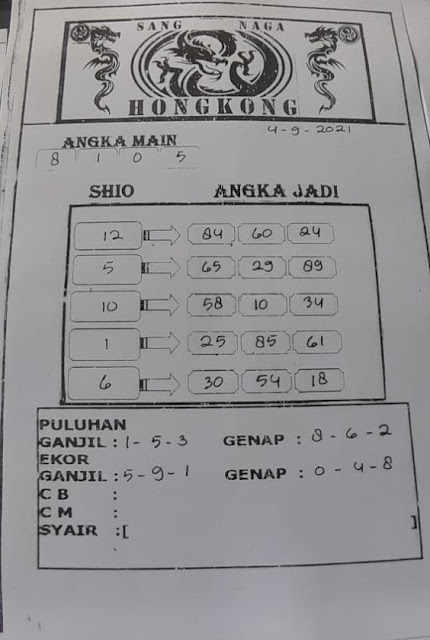 SANG NAGA
HONGKONG
4-9-2021
ANGKA MAIN
8 1 0 5
SHIO ANGKA JADI
12 84 60 24
5 65 29 89
10 58 10 34
1 25 85 61
6 30 54 18
PULUHAN
GANJIL : 1-5-3 GENAP : 8-6-2
EKOR
GANJIL : 5-9-1 GENAP : 0-4-8
C B :
C M :
SYAIR :[ ]